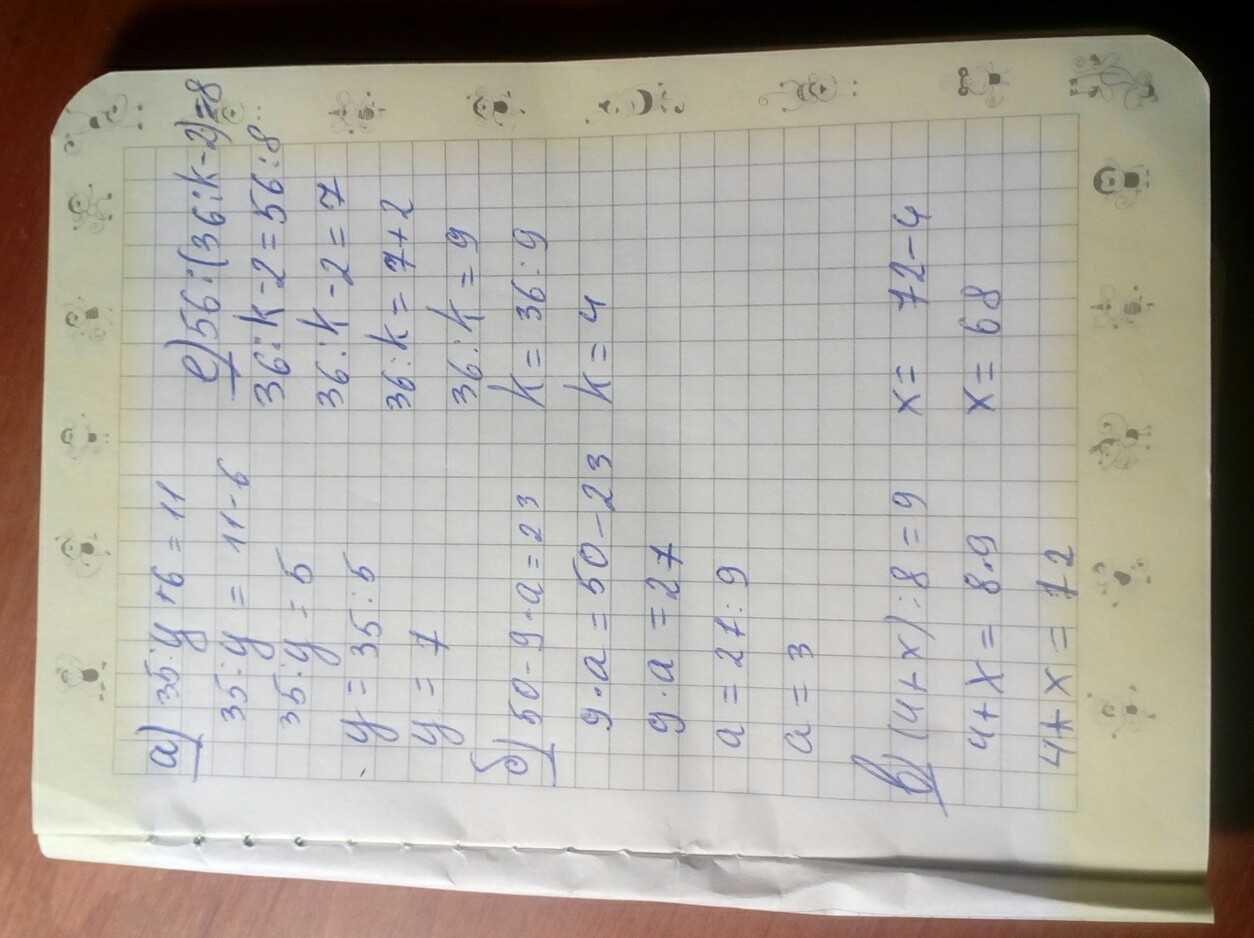 а) 35:у+6=11
35:у=11-6
35:у=5
у=35:5
у=7
б) 50-9·а=23
9·а=50-23
9·а=27
а=27:9
а=3
в) (4+х):8=9
4+х=8·9
4+х=72
х=72-4
х=68
е) 56:(36:k-2)=8
36:k-2=56:8
36:k-2=7
36:k=7+2
36:k=9
k=36:9
k=4